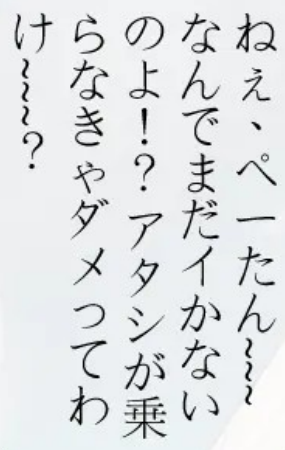 ねぇ、ぺーたん~~~
なんでまだイかない
のよ！？アタシが乗
らなきゃダメってわ
け~~~？